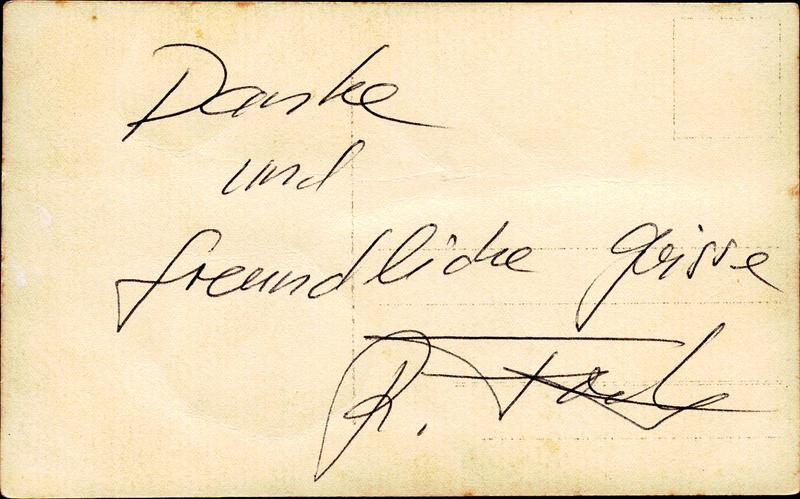 Danke
und
freundliche Grüsse
R.